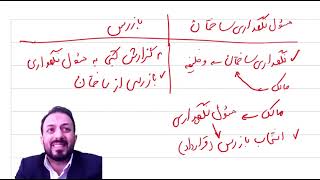 مسئول نگهداری ساختمان
بازرس
✓ نگهداری ساختمان ← وظیفه
مالک
مالک ← مسئول نگهداری
✓ انتخاب بازرس (قرارداد)
✓ گزارش کتبی به مسئول نگهداری
✓ بازرسی از ساختمان